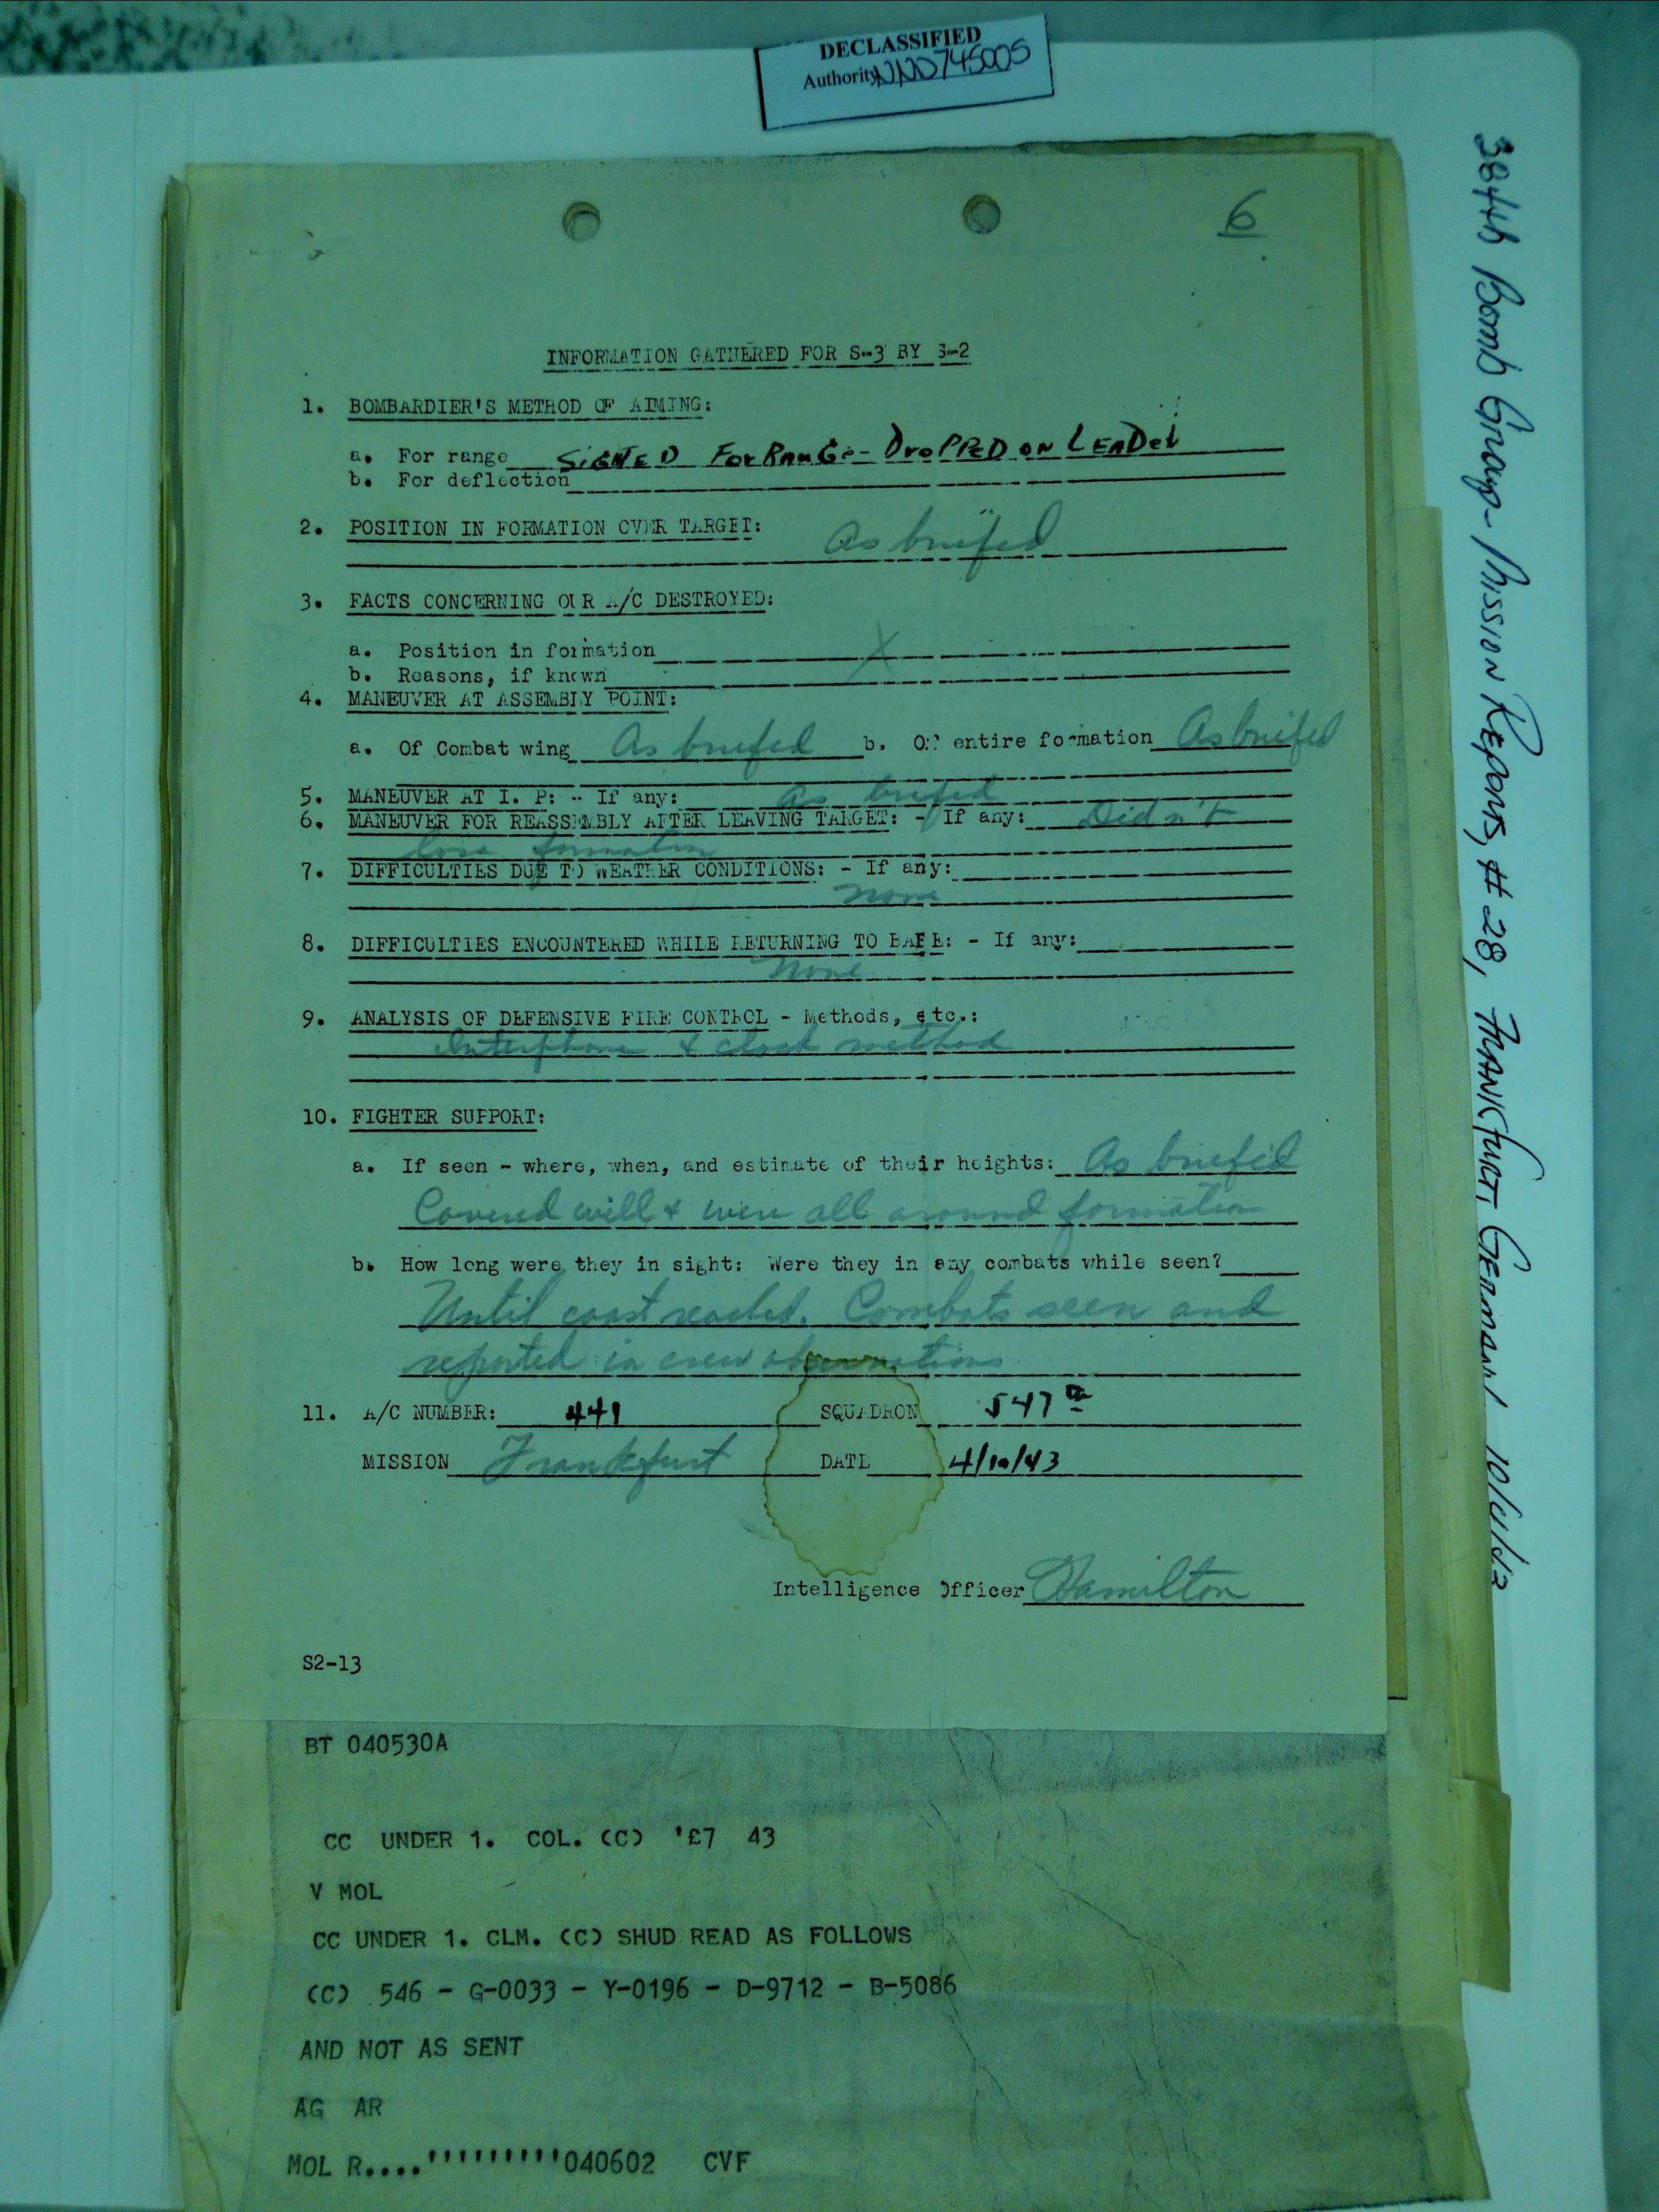 DECLASSIFIED
Authority NND745005
384th Bomb Group - Mission Reports, #28, FRANKfurt, GERMANY 10/4/43
6
INFORMATION GATHERED FOR S-3 BY S-2
1. BOMBARDIER'S METHOD OF AIMING:
a. For range SiGHTED For RanGe - DroPPED on LEADer
b. For deflection
2. POSITION IN FORMATION OVER TARGET: As briefed
3. FACTS CONCERNING OUR A/C DESTROYED:
a. Position in formation X
b. Reasons, if known
4. MANEUVER AT ASSEMBLY POINT:
a. Of Combat wing As briefed b. Of entire formation As briefed
5. MANEUVER AT I. P: - If any: As briefed
6. MANEUVER FOR REASSEMBLY AFTER LEAVING TARGET: - If any: Didn't
lose formation
7. DIFFICULTIES DUE TO WEATHER CONDITIONS: - If any:
None
8. DIFFICULTIES ENCOUNTERED WHILE RETURNING TO BASE: - If any:
None
9. ANALYSIS OF DEFENSIVE FIRE CONTROL - Methods, etc.:
Interphone & clock method
10. FIGHTER SUPPORT:
a. If seen - where, when, and estimate of their heights: As briefed
Covered well & were all around formation
b. How long were they in sight: Were they in any combats while seen?
Until coast reached. Combats seen and
reported in crew observations
11. A/C NUMBER: 441 SQUADRON 547th
MISSION Frankfurt DATE 4/10/43
Intelligence Officer Hamilton
S2-13
BT 040530A
CC UNDER 1. COL. (C) '£7 43
V MOL
CC UNDER 1. CLM. (C) SHUD READ AS FOLLOWS
(C) .546 - G-0033 - Y-0196 - D-9712 - B-5086
AND NOT AS SENT
AG AR
MOL R....'''''''''040602 CVF